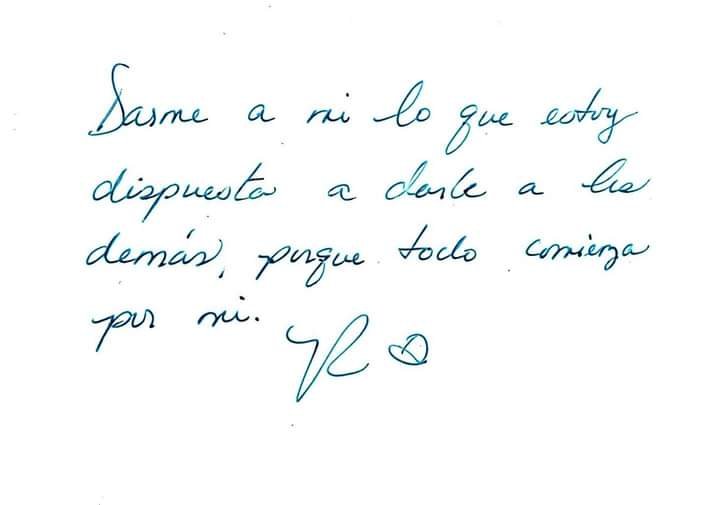 Darme a mi lo que estoy
dispuesta a darle a los
demás, porque todo comienza
por mi.